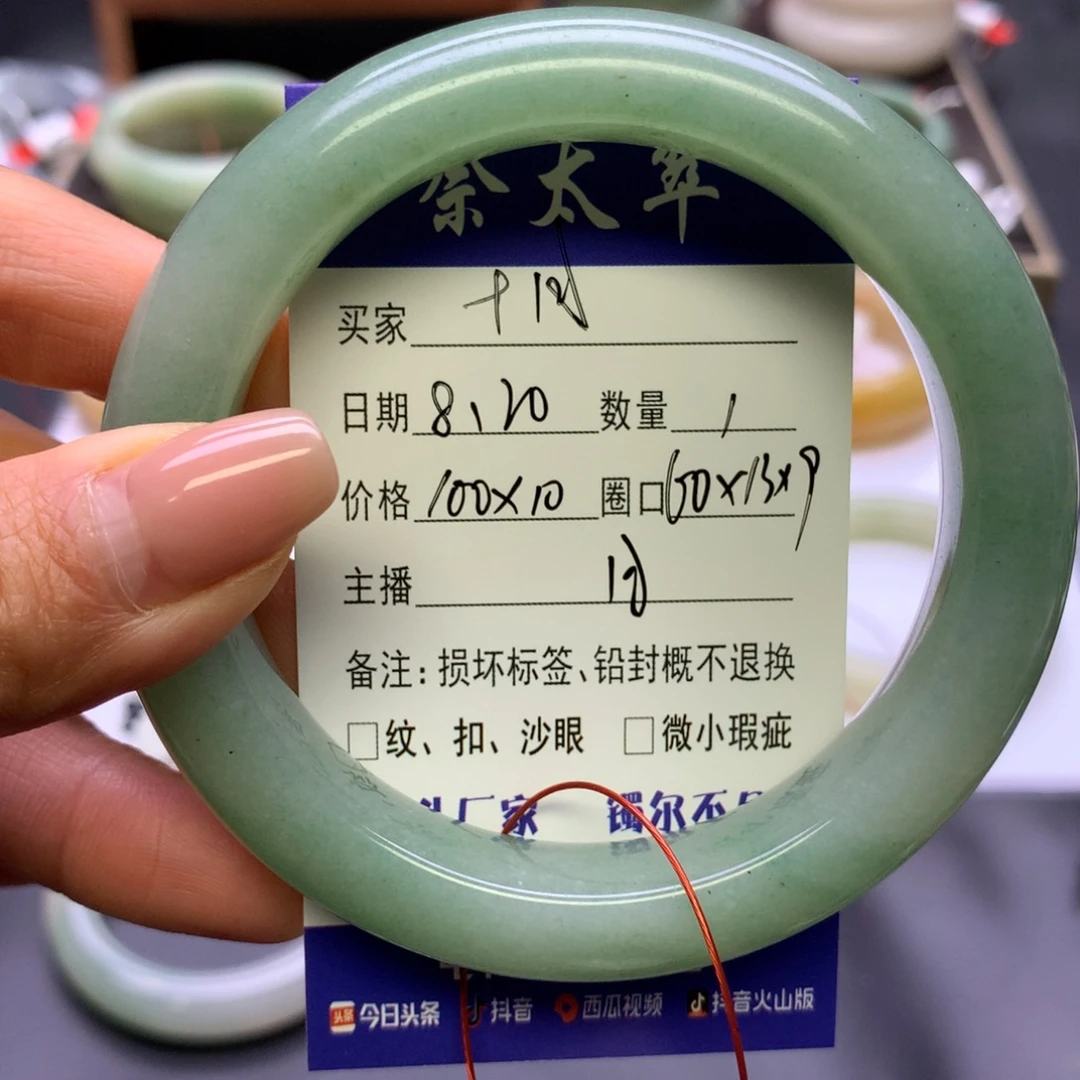 奈太翠
买家
日期 8、20 数量 1
价格 100×10 圈口 60×13×9
主播
备注:损坏标签、铅封概不退换
□纹、扣、沙眼 □微小瑕疵
厂家 镯尔不
头条 今日头条 抖音 西瓜视频 抖音火山版